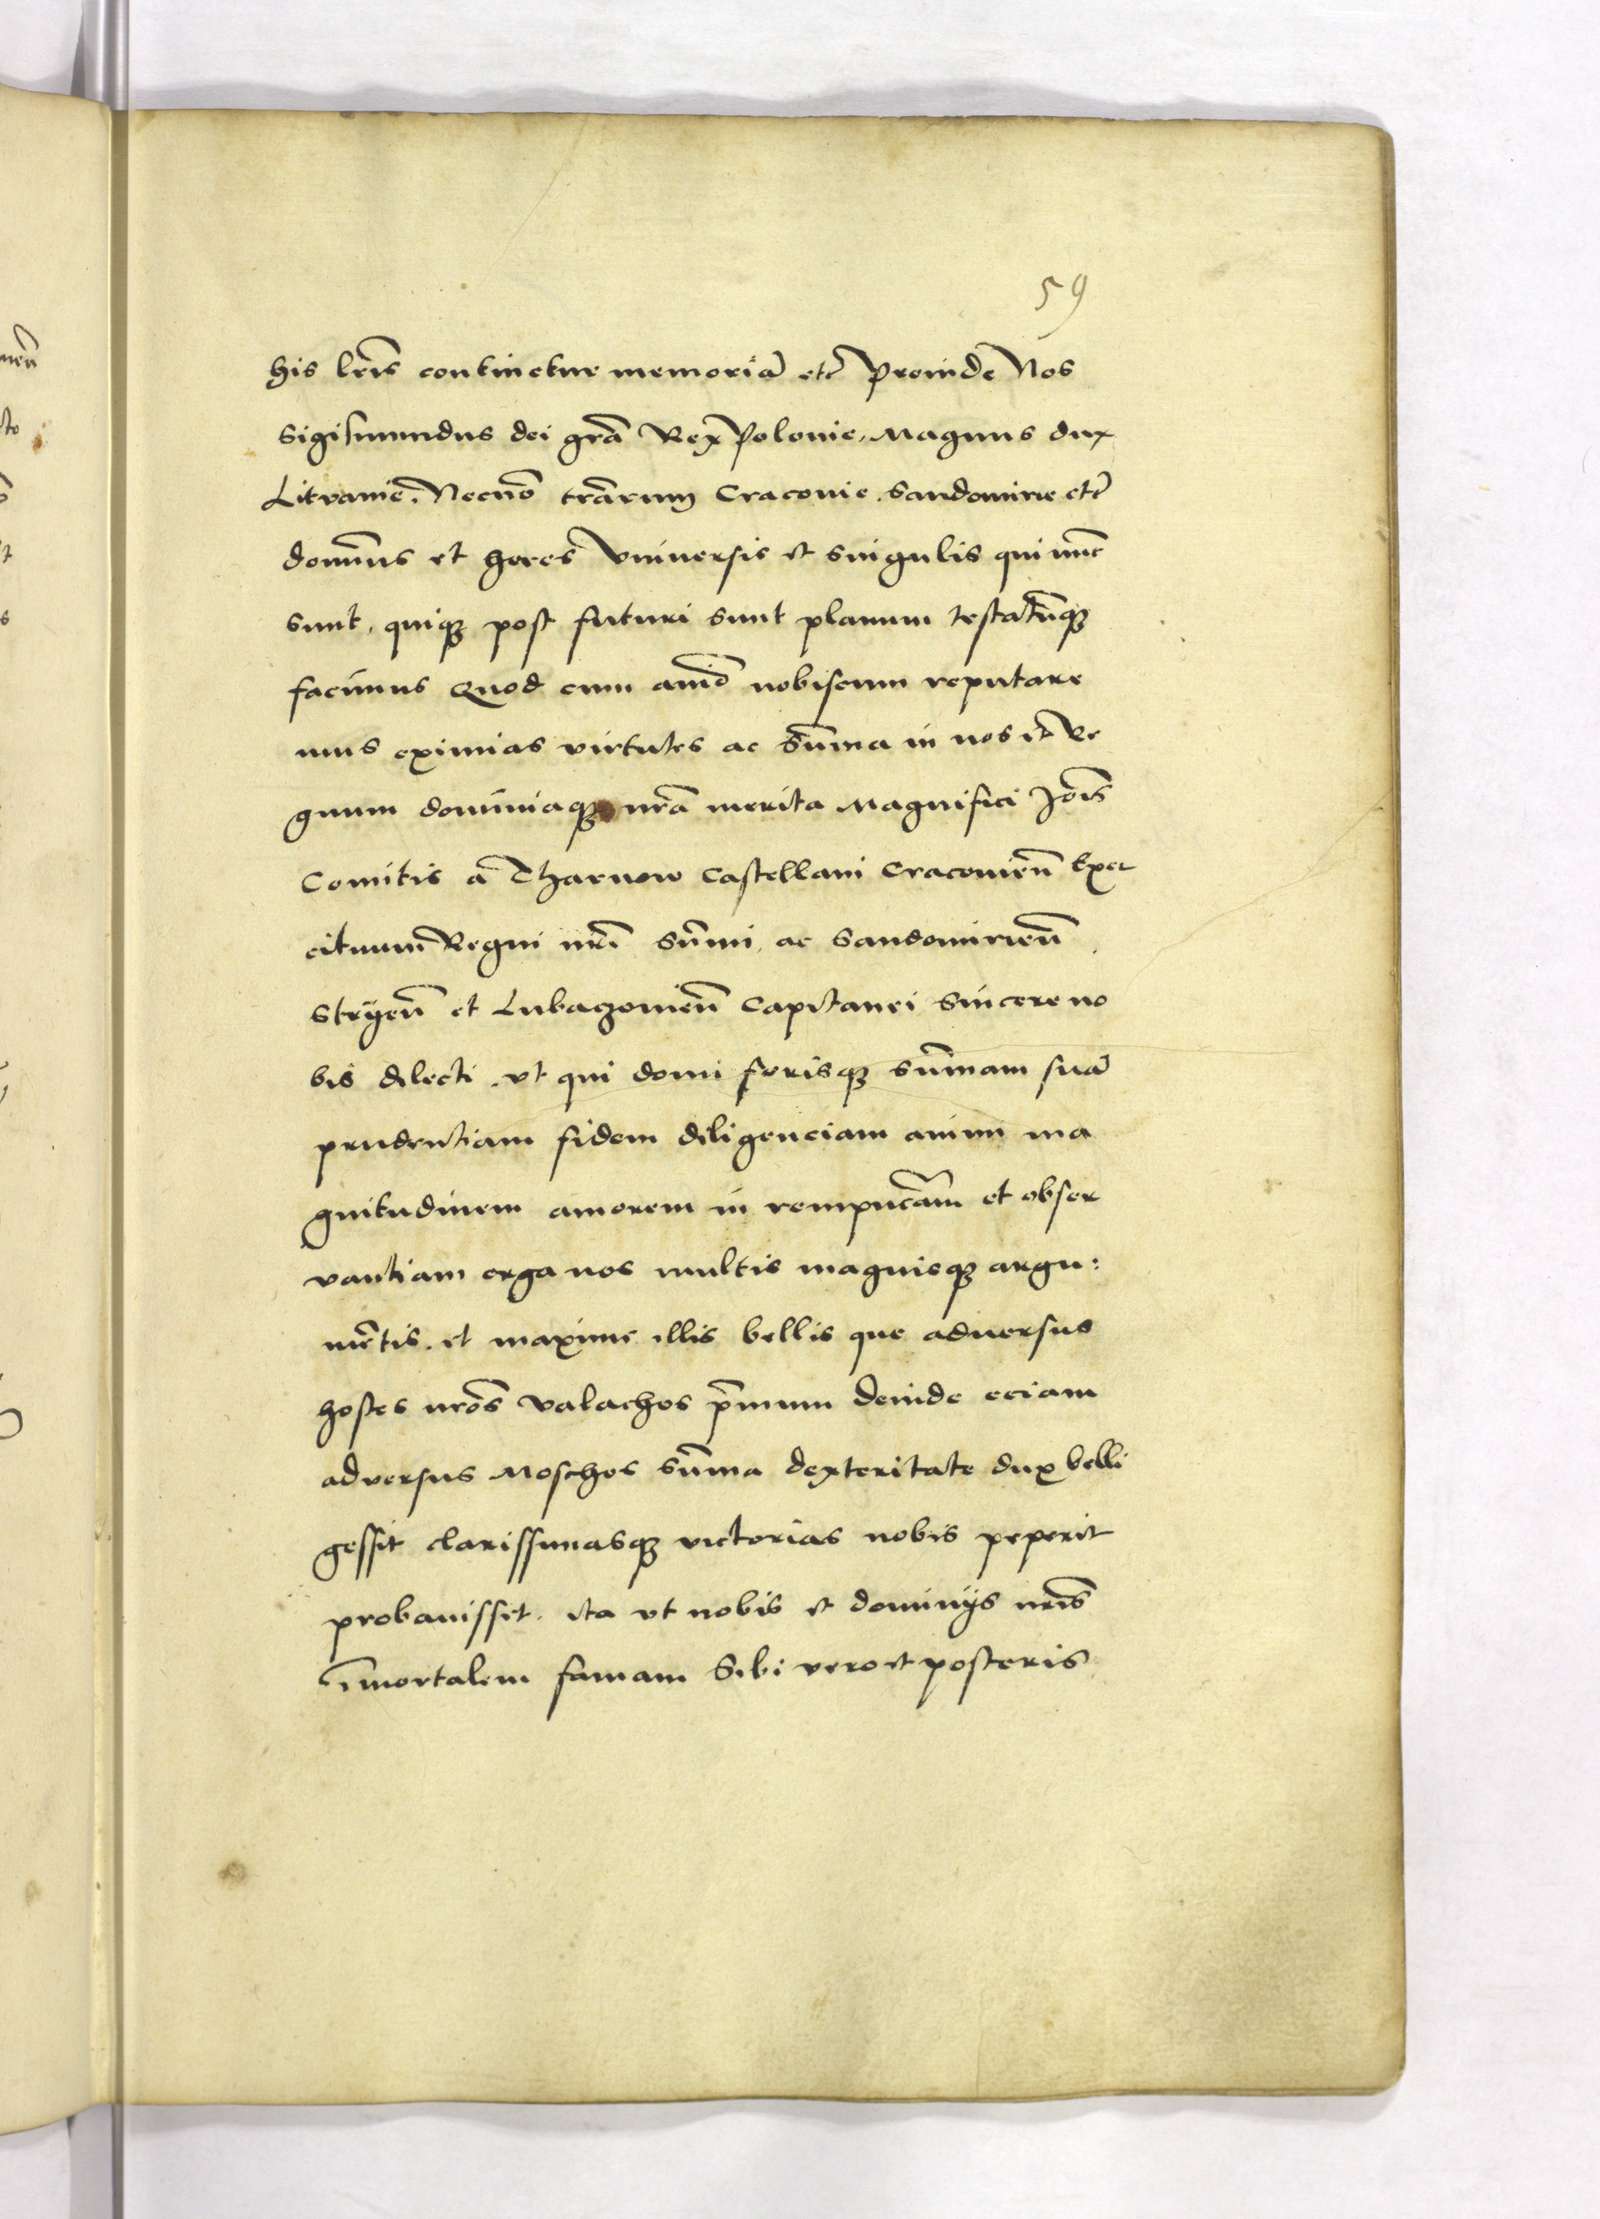 59
his lr̃is continetur memoriã etc̃ Proinde Nos
Sigismundus dei grã Rex Polonie, Magnus dux
Litvanie, Necnõ trãrum Cracovie Sandomirie etc̃
domñus et heres Vniuersis et singulis qui nũc
sunt, quiqꝫ post futuri sunt planum testatũqꝫ
facimus Quod cum aĩo nobiscum reputare
mus eximias virtutes ac sũma in nos et Re
gnum dominiaqꝫ nr̃a merita Magnifici Joĩs
Comitis a Tharnow Castellani Cracovieñ Exer
cituum Regni nr̃i sũmi ac Sandomirieñ
Stryeñ et Lubaczovieñ Capitanei Sincere no
bis dilecti, vt qui domi forisqꝫ sũmam suã
prudentiam fidem diligenciam animi ma
gnitudinem amorem in rempucãm et obser
vantiam erga nos multis magnisqꝫ argu:
mẽtis, et maxime illis bellis que aduersus
hostes nr̃os Valachos p̃mum deinde eciam
adversus Moschos sũma dexteritate dux belli
gessit clarissimasqꝫ victorias nobis peperit
probauisset, ita vt nobis et dominijs nr̃is
ĩmortalem famam Sibi vero et posteris